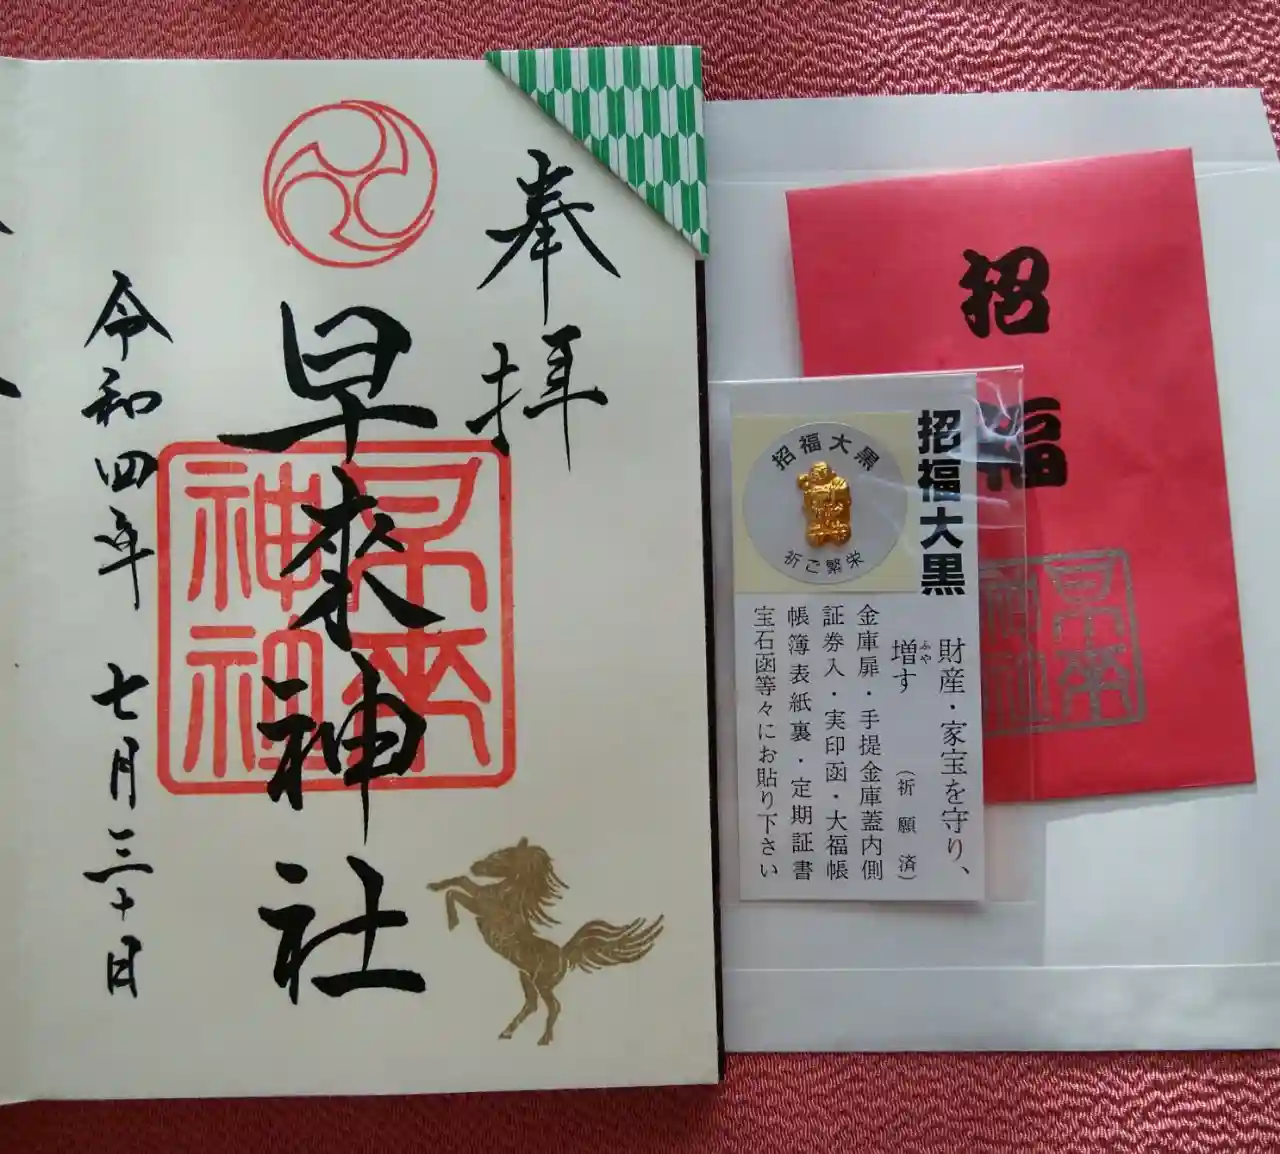 奉拝
早来神社
早来
神社
令和四年 七月三十日
招福
早来
神社
招福大黒
祈ご繁栄
招福大黒
財産・家宝を守り、
増す（祈願済）
ふや
金庫扉・手提金庫蓋内側
証券入・実印函・大福帳
帳簿表紙裏・定期証書
宝石函等々にお貼り下さい